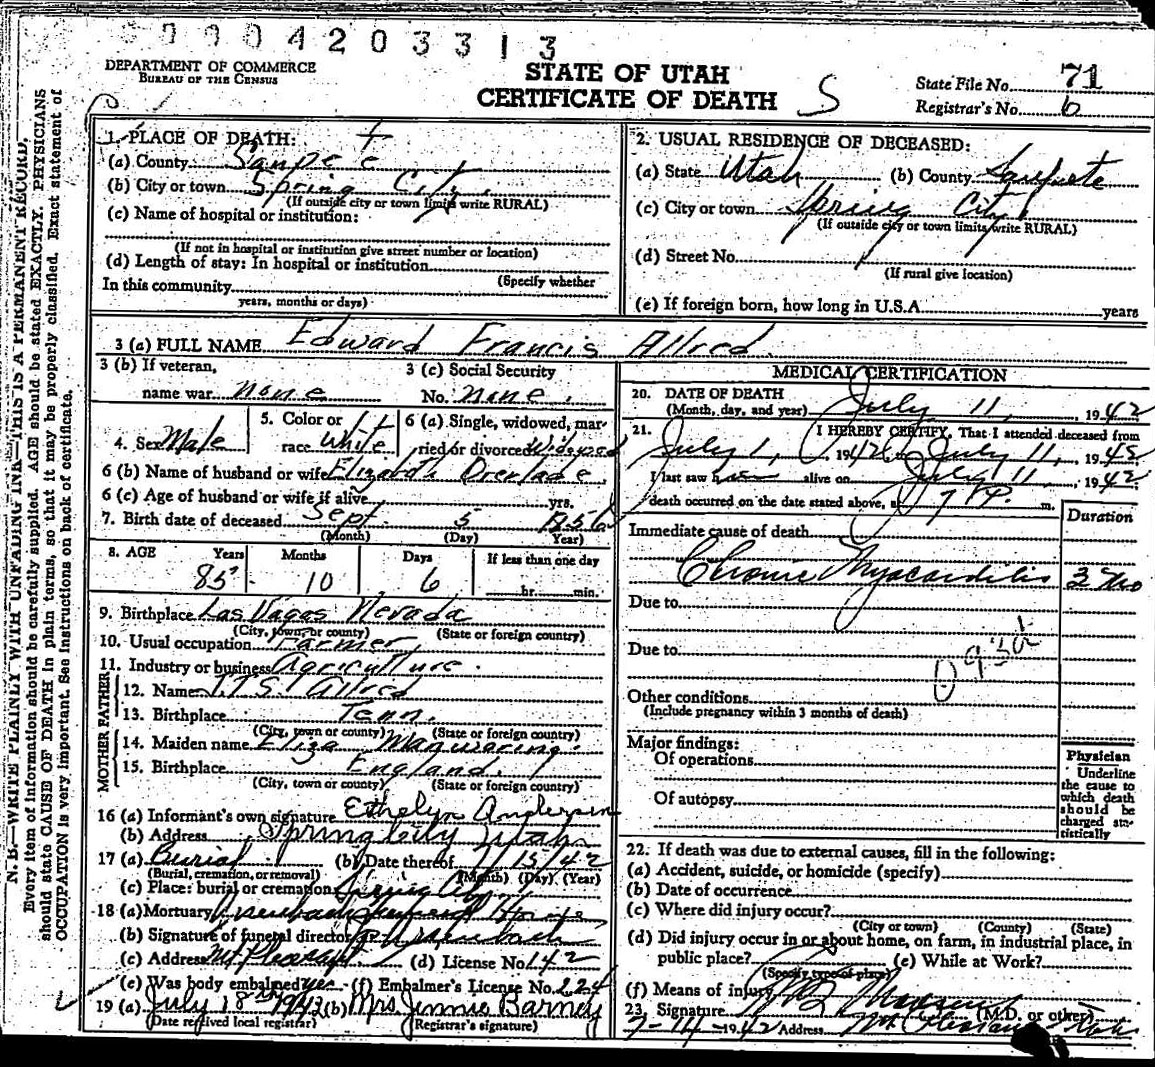 0 0 0 4 2 0 3 3 1 3
DEPARTMENT OF COMMERCE
BUREAU OF THE CENSUS
STATE OF UTAH
CERTIFICATE OF DEATH
S
State File No. 71
Registrar's No. 6
N. B.—WRITE PLAINLY WITH UNFADING INK—THIS IS A PERMANENT RECORD.
Every item of information should be carefully supplied. AGE should be stated EXACTLY. PHYSICIANS
should state CAUSE OF DEATH in plain terms, so that it may be properly classified. Exact statement of
OCCUPATION is very important. See instructions on back of certificate.
1. PLACE OF DEATH:
(a) County Sanpete
(b) City or town Spring City
(If outside city or town limits write RURAL)
(c) Name of hospital or institution:
(If not in hospital or institution give street number or location)
(d) Length of stay: In hospital or institution
(Specify whether
In this community
years, months or days)
2. USUAL RESIDENCE OF DECEASED:
(a) State Utah (b) County Sanpete
(c) City or town Spring City
(If outside city or town limits write RURAL)
(d) Street No.
(If rural give location)
(e) If foreign born, how long in U.S.A. years
3 (a) FULL NAME Edward Francis Allred
3 (b) If veteran, name war none
3 (c) Social Security No. none
4. Sex Male
5. Color or race White
6 (a) Single, widowed, married or divorced Widowed
6 (b) Name of husband or wife Elizabeth Overlade
6 (c) Age of husband or wife if alive yrs.
7. Birth date of deceased Sept. 5 1856
(Month) (Day) Year)
8. AGE Years Months Days If less than one day
85 10 6 hr. min.
9. Birthplace Las Vagas Nevada
(City, town, or county) (State or foreign country)
10. Usual occupation Farmer
11. Industry or business Agriculture.
FATHER
12. Name Allred
13. Birthplace Tenn.
(City, town or county) (State or foreign country)
MOTHER
14. Maiden name Eliza Manwaring
15. Birthplace England.
(City, town or county) (State or foreign country)
16 (a) Informant's own signature Ethelyn Anderson
(b) Address Spring City Utah
17 (a) Burial (b) Date thereof 7/15/42
(Burial, cremation, or removal) (Month) (Day) (Year)
(c) Place: burial or cremation Spring City
18 (a) Mortuary
(b) Signature of funeral director
(c) Address Mt Pleasant (d) License No. 142
(e) Was body embalmed yes (f) Embalmer's License No. 224
19 (a) July 18th 1942 (b) Mrs Jennie Barney
(Date received local registrar) (Registrar's signature)
MEDICAL CERTIFICATION
20. DATE OF DEATH
(Month, day, and year) July 11, 1942
21. I HEREBY CERTIFY, That I attended deceased from
July 1, 1942 to July 11, 1942
I last saw h alive on July 11, 1942
death occurred on the date stated above, at 7 P. m.
Duration
Immediate cause of death
Chronic Myocarditis 3 Mo
Due to
Due to
Other conditions
(Include pregnancy within 3 months of death)
Major findings:
Of operations
Of autopsy
Physician
Underline
the cause to
which death
should be
charged sta-
tistically
22. If death was due to external causes, fill in the following:
(a) Accident, suicide, or homicide (specify)
(b) Date of occurrence
(c) Where did injury occur?
(City or town) (County) (State)
(d) Did injury occur in or about home, on farm, in industrial place, in
public place? (e) While at Work?
(Specify type of place)
(f) Means of injury
23. Signature Madsen (M.D. or other)
7-14-1942 Address Mt Pleasant Utah